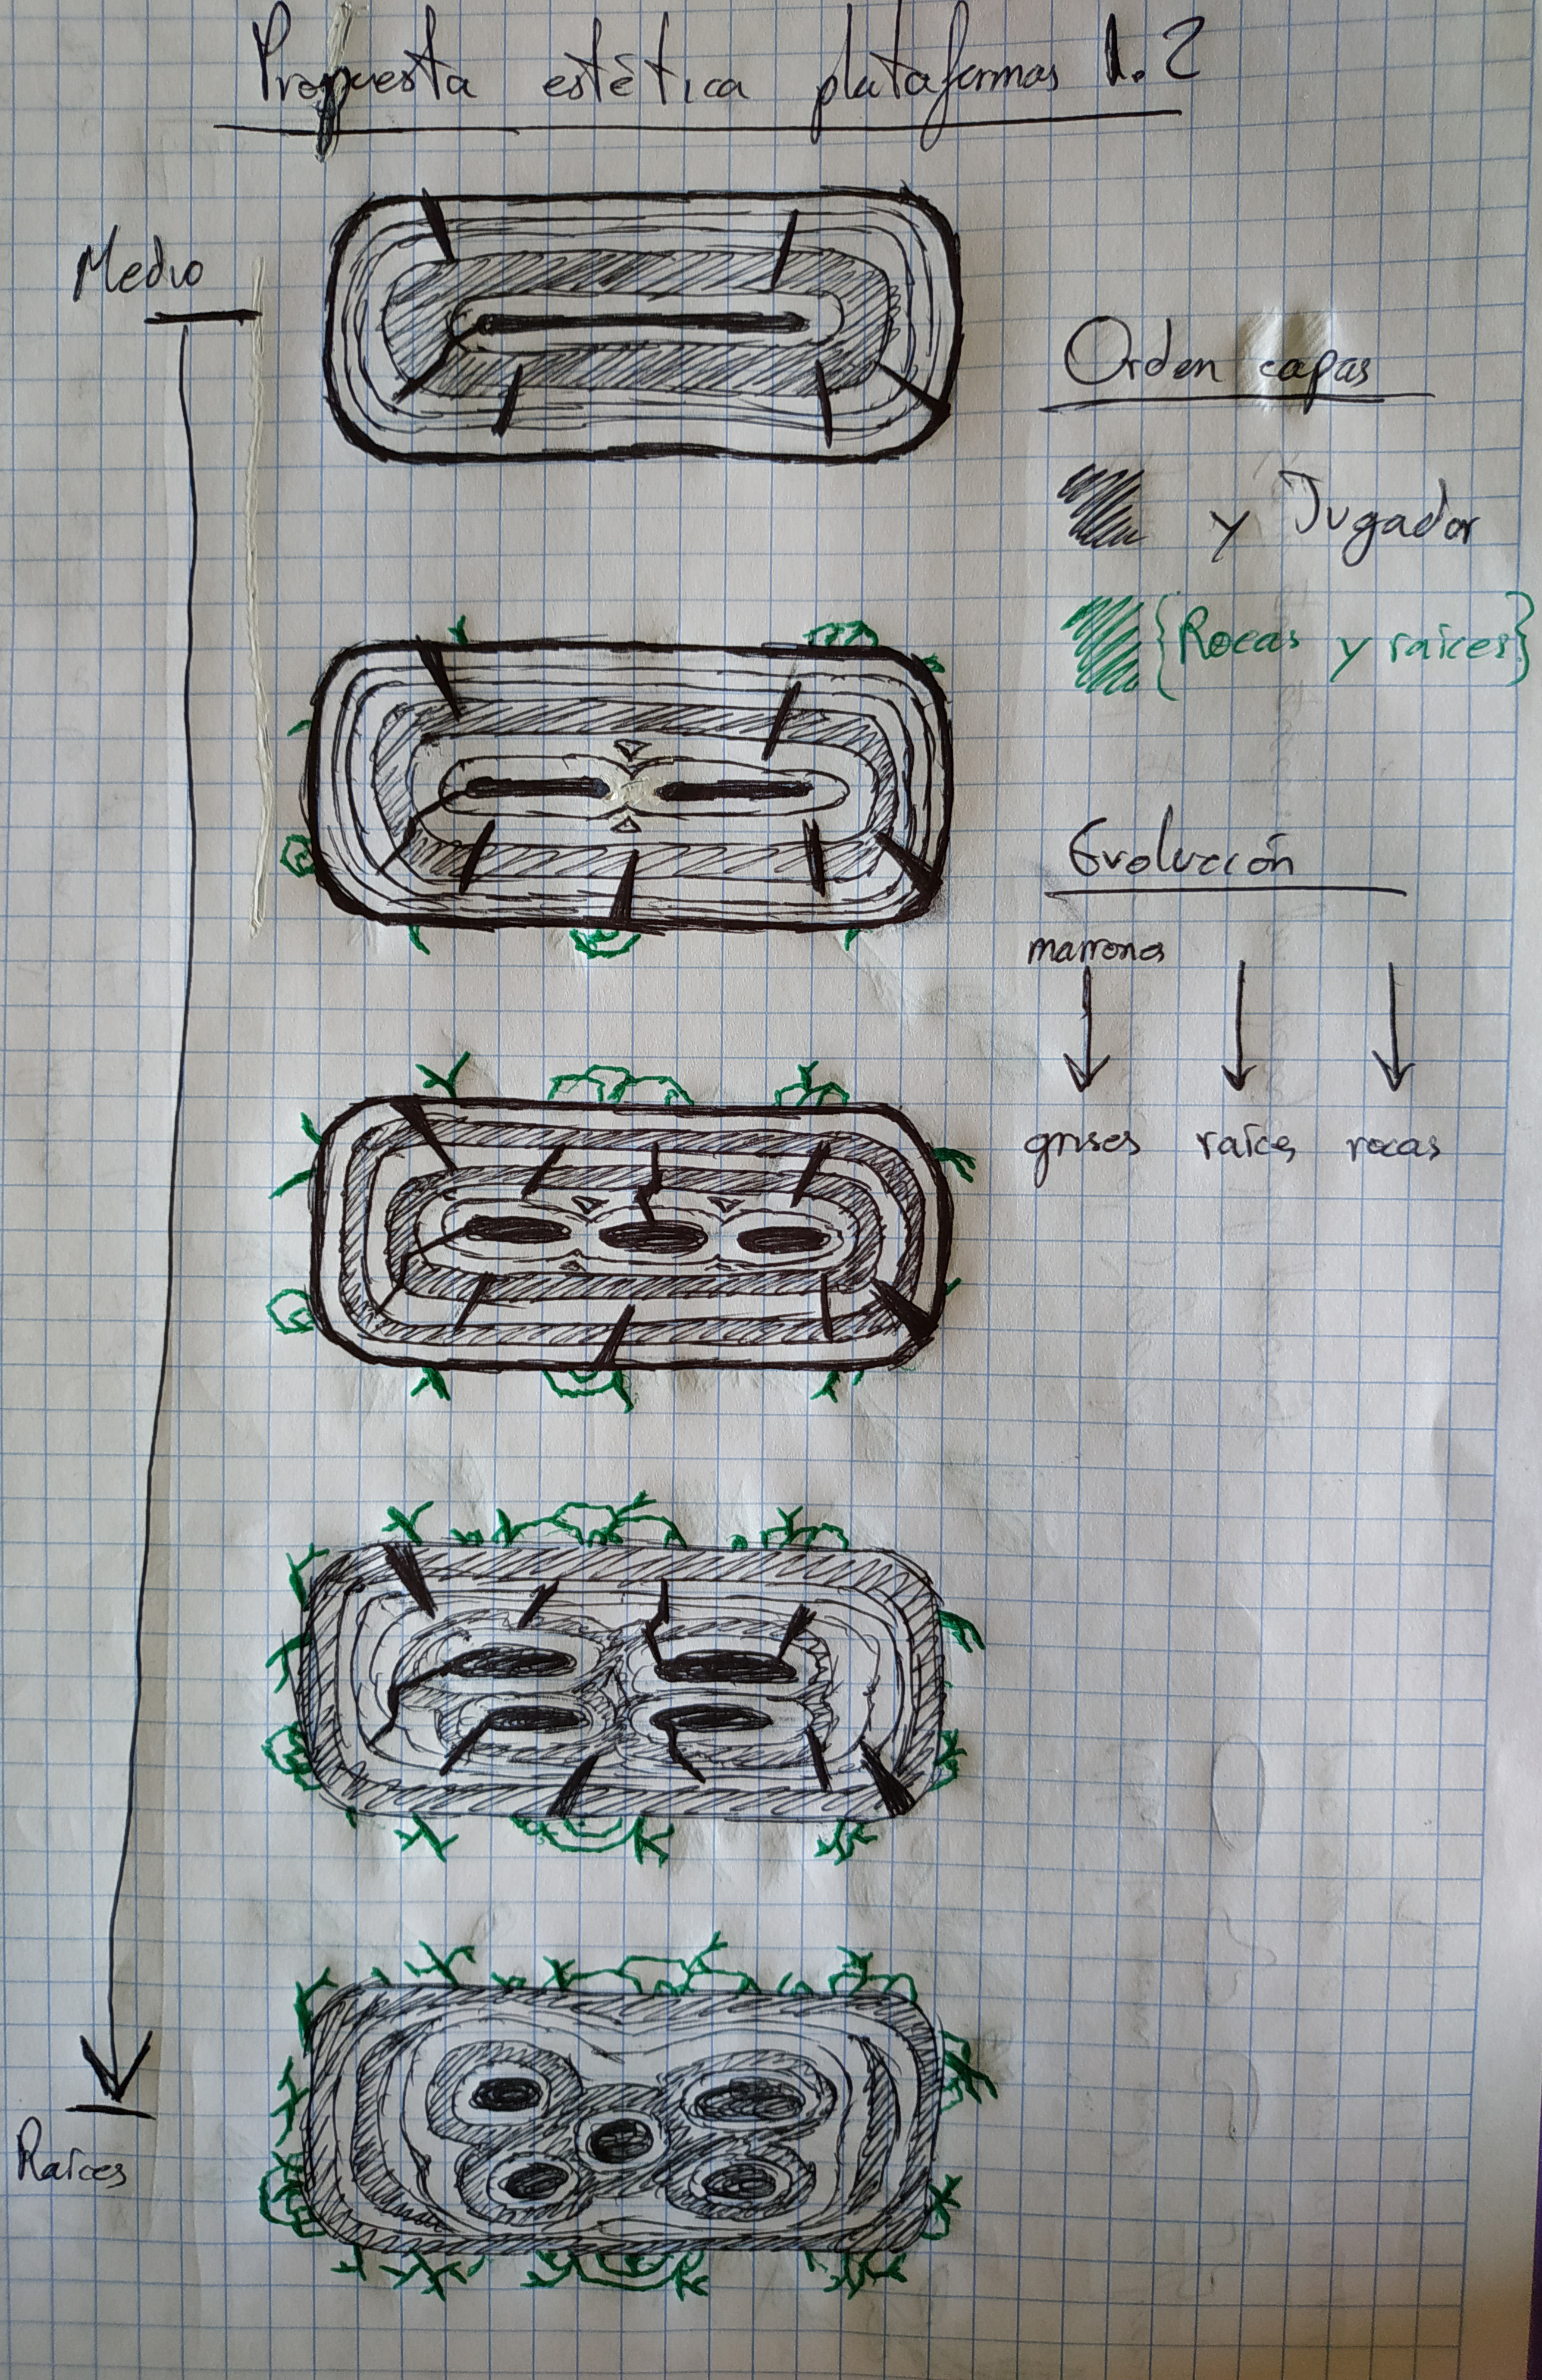 Propuesta estética plataformas 1.2
Medio
Orden capas
y Jugador
{Rocas y raíces}
Evolución
marrones
grises raíces rocas
Raíces